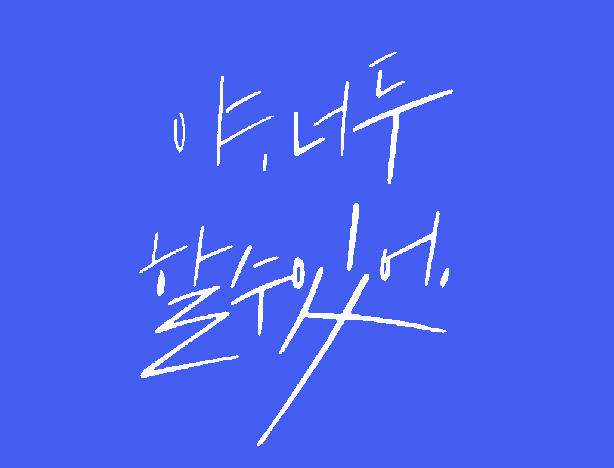 야, 너두
할 수 있어.